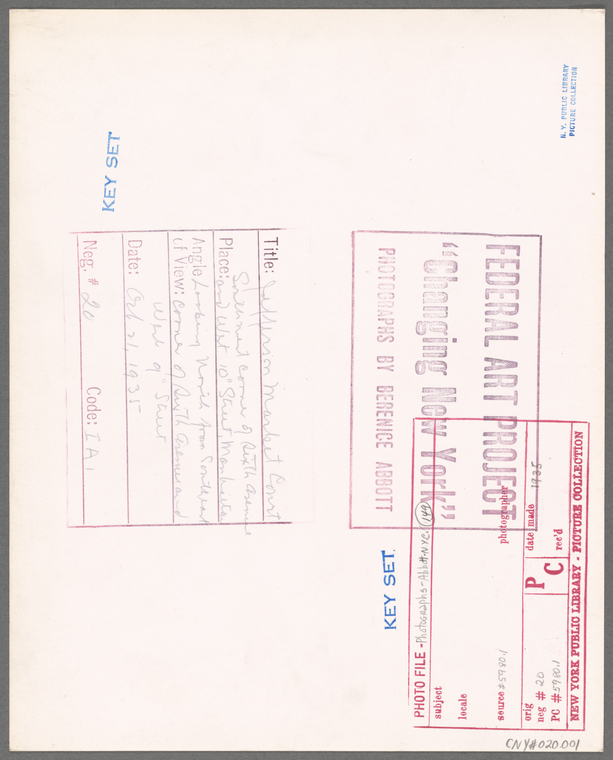 N. Y. PUBLIC LIBRARY
PICTURE COLLECTION
KEY SET
FEDERAL ART PROJECT
"Changing New York"
PHOTOGRAPHS BY BERENICE ABBOTT
Title: Jefferson Market Court
Place: Southwest corner of Sixth Avenue
and West 10" Street, Manhattan
Angle Looking North from Southeast
of View: corner of Sixth Avenue and
West 9" Street
Date: Oct 21, 1935
Neg. # 20 Code: I A 1
KEY SET.
PHOTO FILE - Photographs - Abbott - NYC. 149
subject
locale
photographer
source #5980.1
date made 1935
rec'd
P C
orig
neg # 20
PC #5980.1
NEW YORK PUBLIC LIBRARY - PICTURE COLLECTION
CNY#020.001